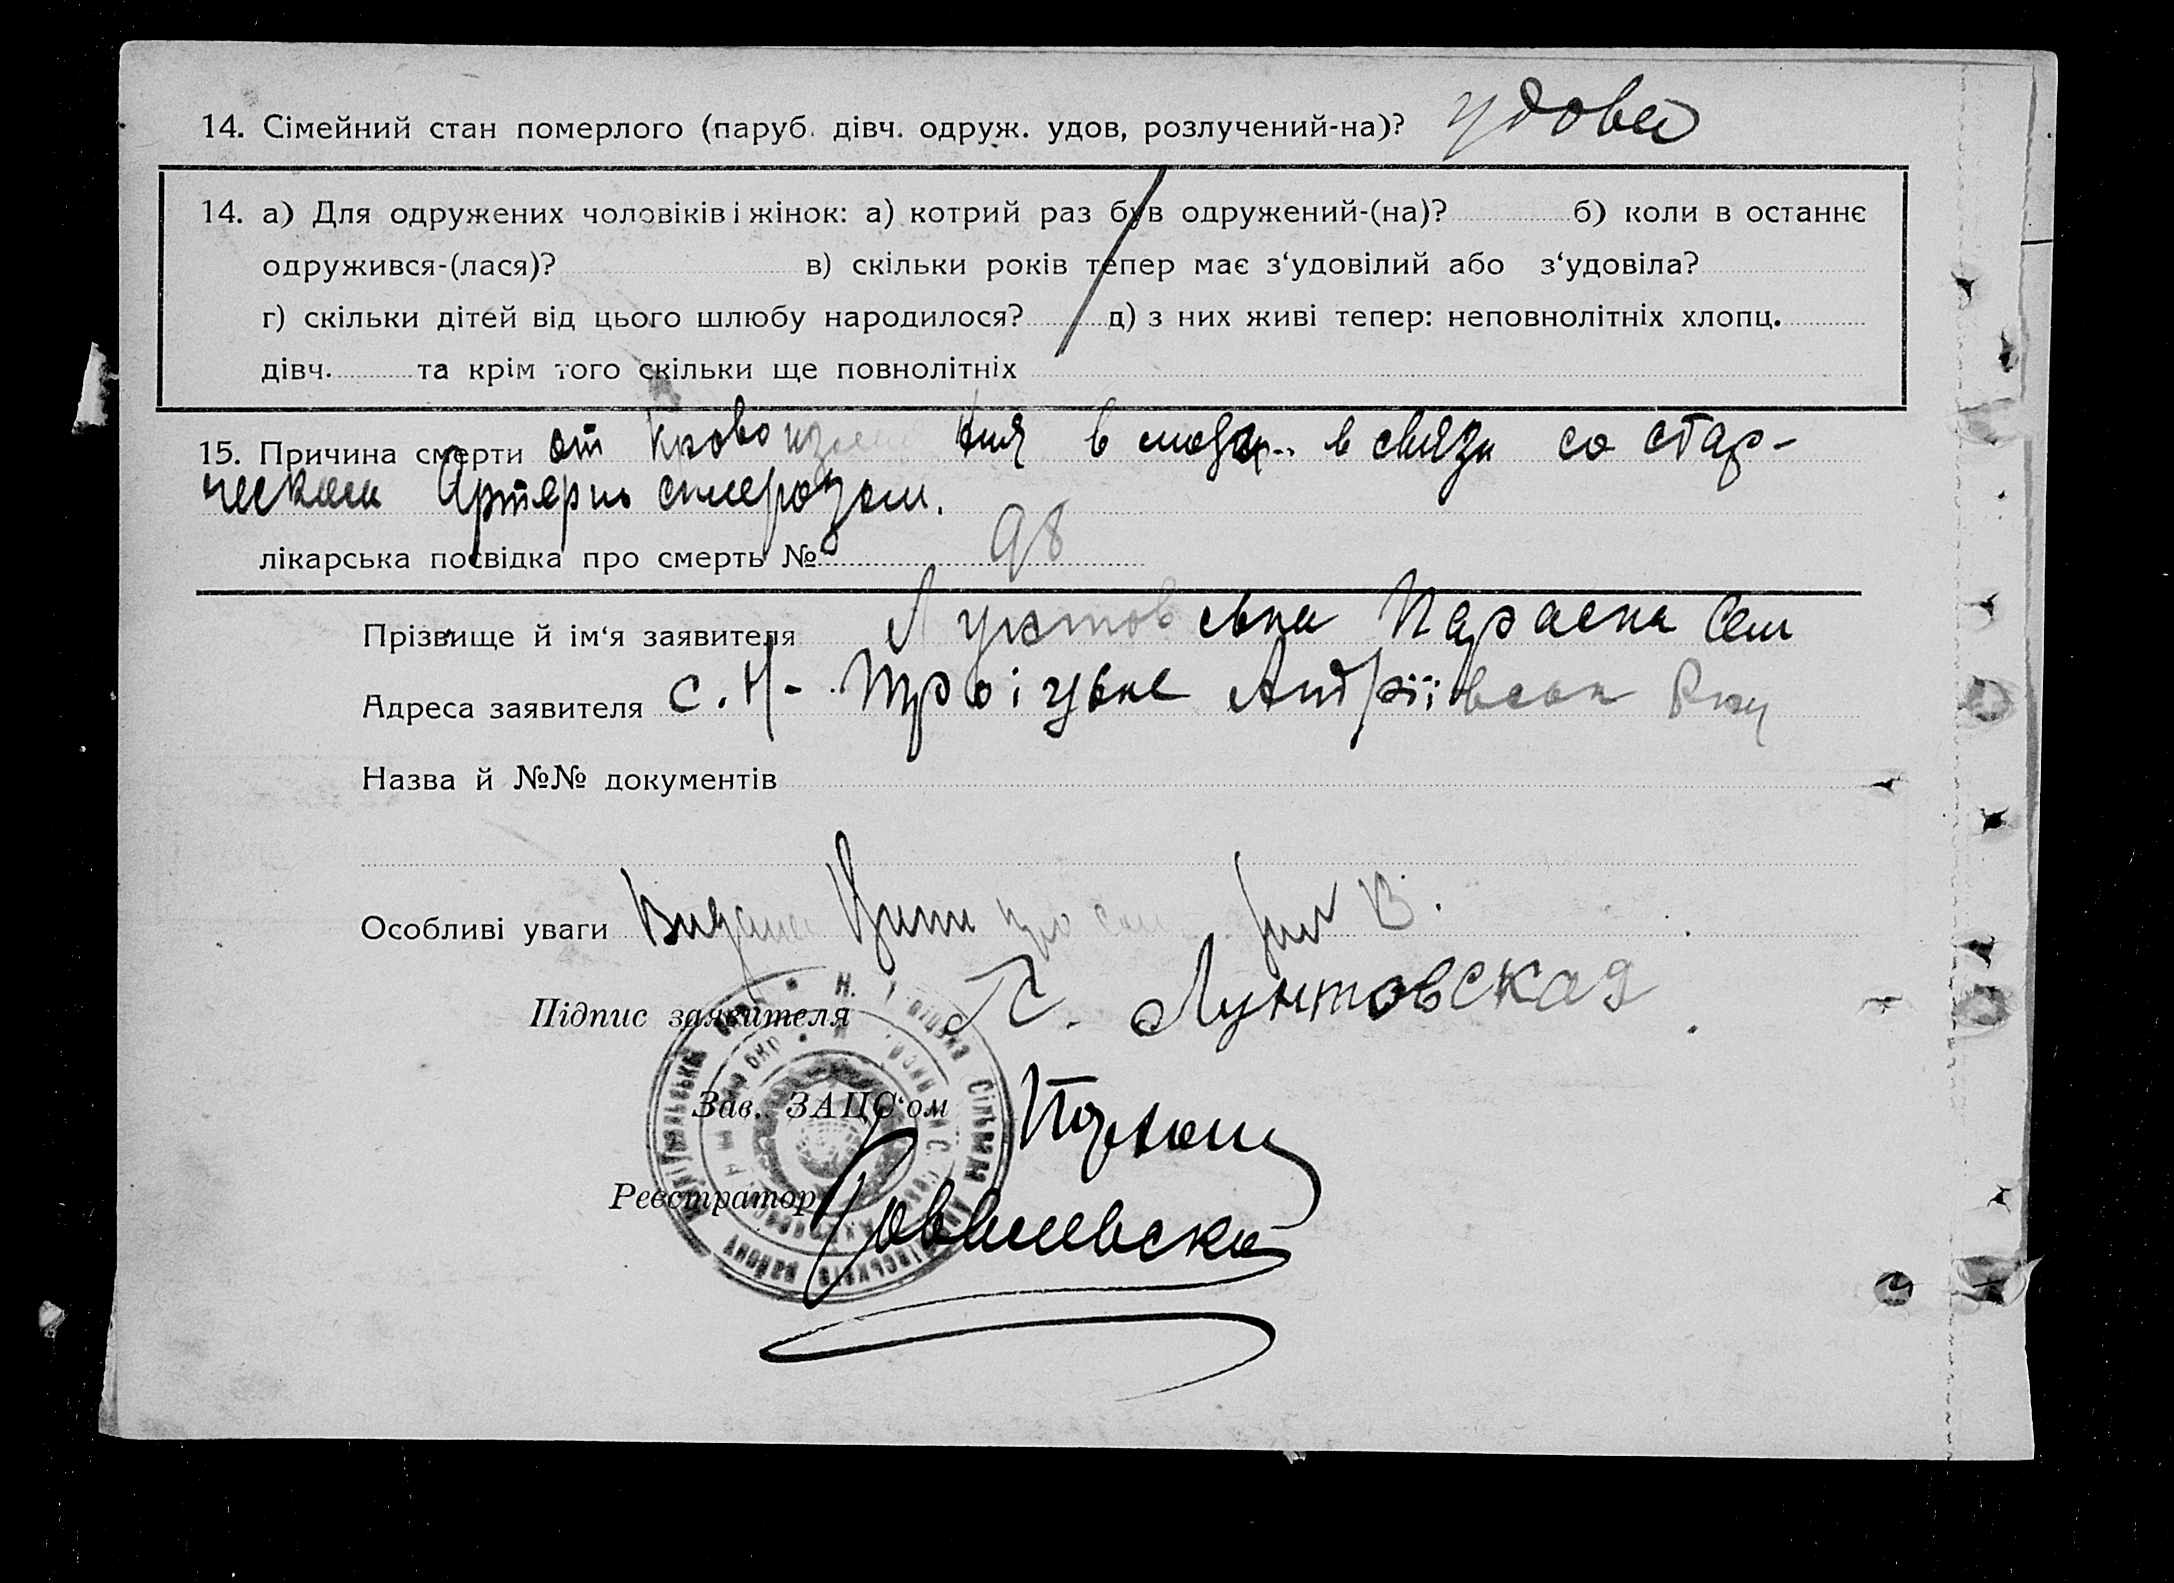 14. Сімейний стан померлого (паруб. дівч. одруж. удов, розлучений-на)? удова
14. а) Для одружених чоловіків і жінок: а) котрий раз був одружений-(на)? б) коли в останнє
одружився-(лася)? в) скільки років тепер має з‘удовілий або з‘удовіла?
г) скільки дітей від цього шлюбу народилося? д) з них живі тепер: неповнолітніх хлопц.
дівч. та крім того скільки ще повнолітніх
15. Причина смерти от в связи со стар-
ческим Артерио склерозом.
лікарська посвідка про смерть № 98
Прізвище й ім‘я заявителя Лунтовська Параска Сем
Адреса заявителя с. Н-Троіцьке Андріївськ
Назва й №№ документів
Особливі уваги Видана
Підпис заявителя П. Лунтовская
Зав. ЗАЦС‘ом
Реєстратор